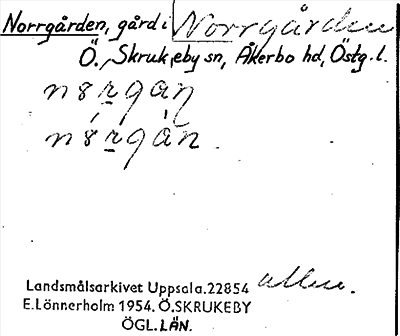 Norrgården, gård i Norrgården
Ö. Skrukeby sn, Åkerbo hd, Östg.l.
Landsmålsarkivet Uppsala.22854
E.Lönnerholm 1954. Ö.SKRUKEBY
ÖGL.LÄN.